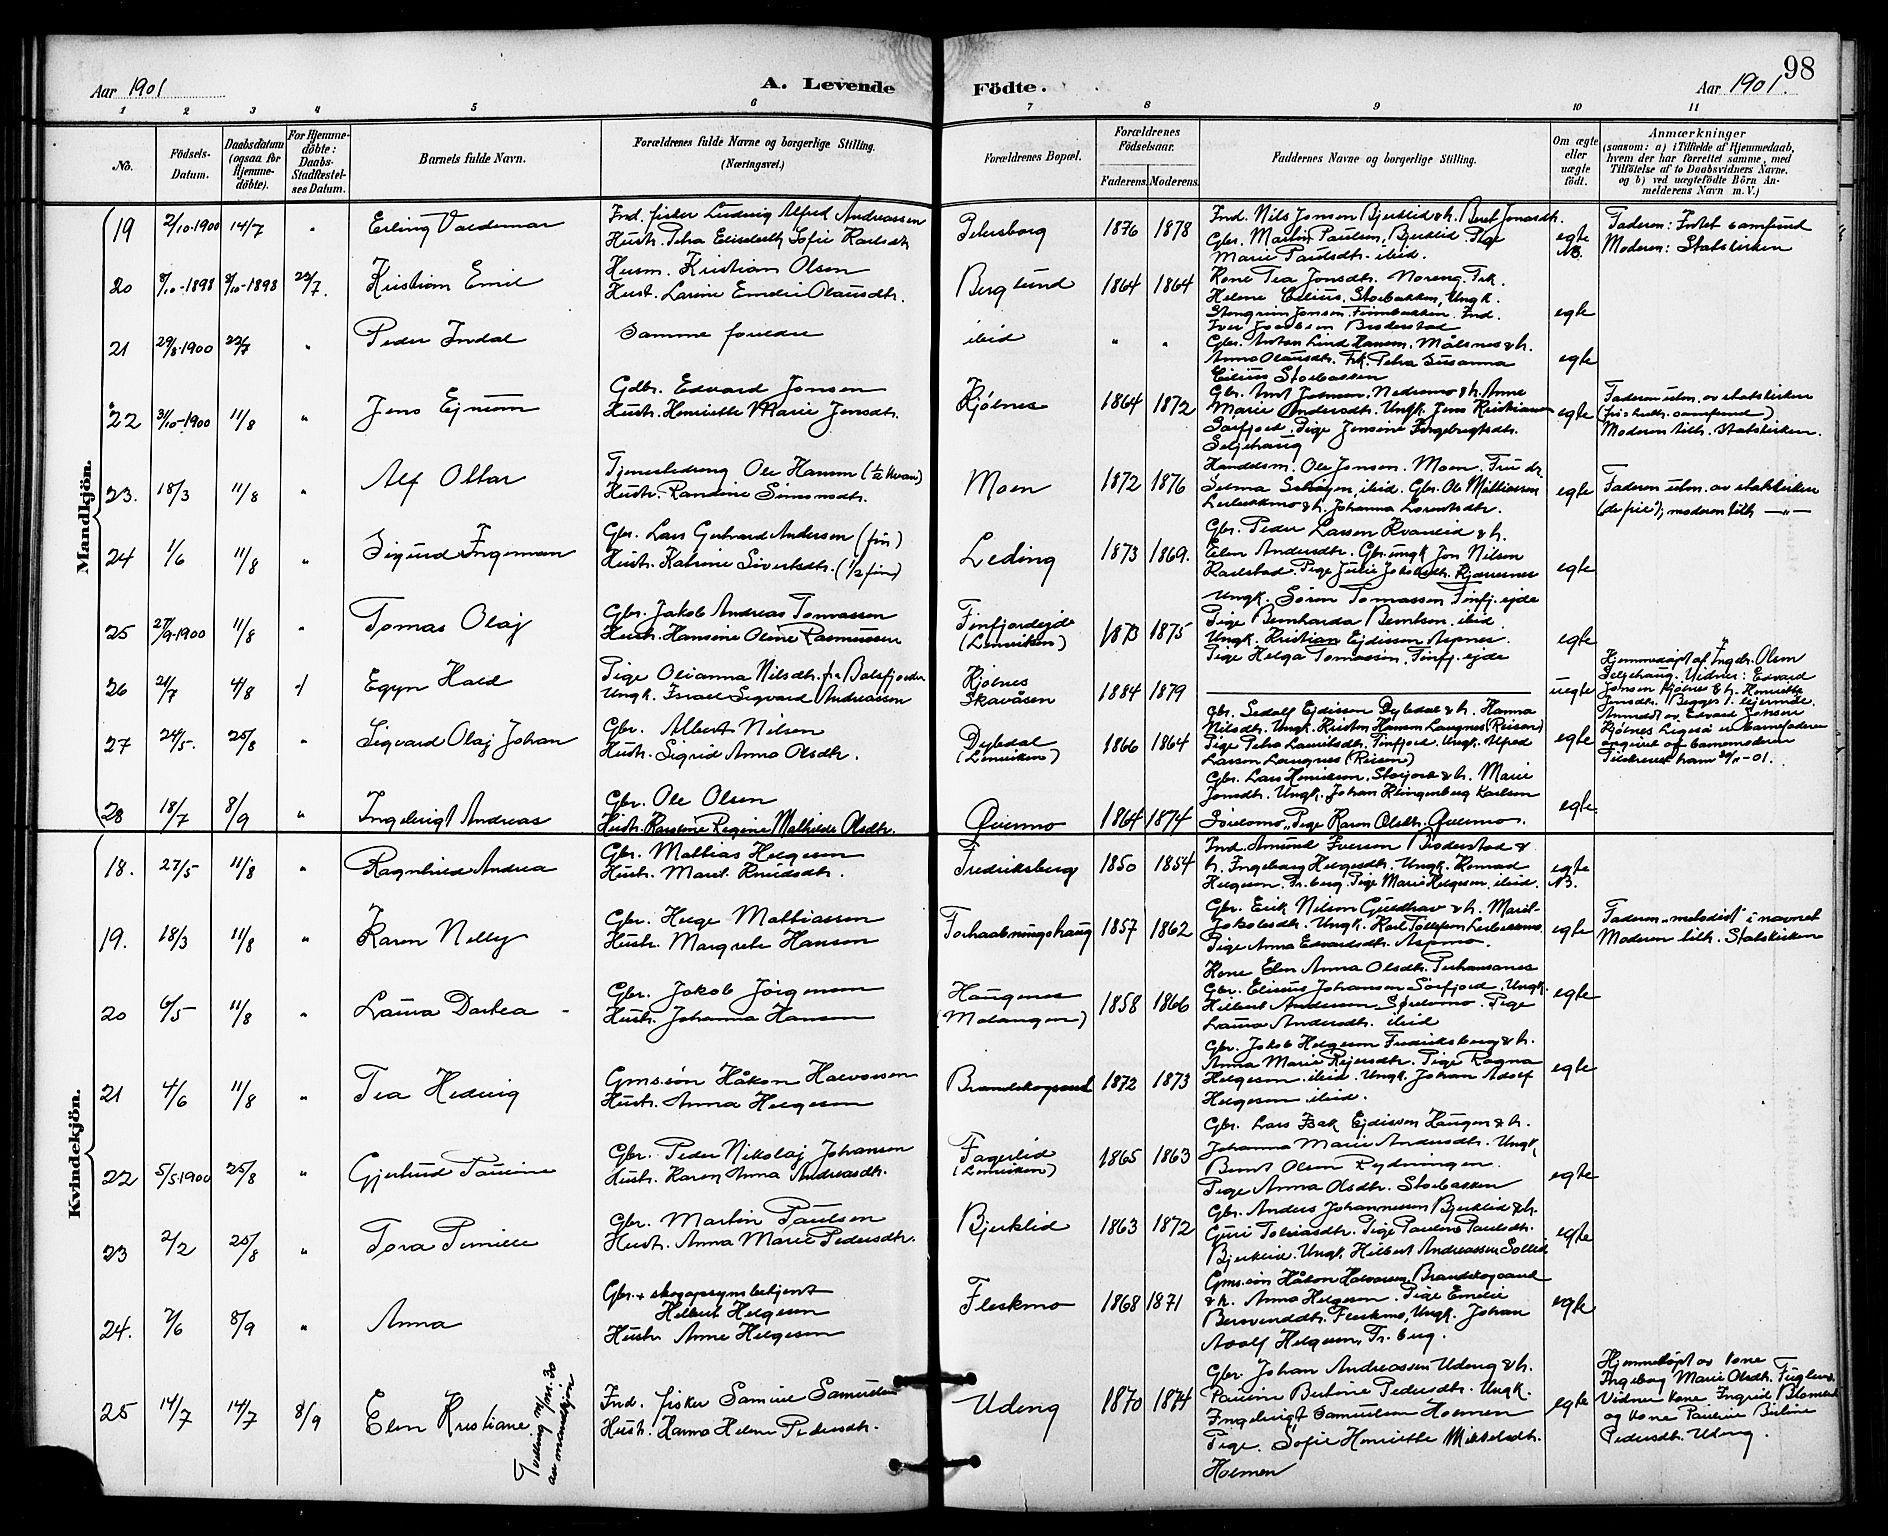 Aar 1901
A. Levende
Födte.
Aar 1901.
98
1 2 3 4 5 6 7 8 9 10 11
No.
Födsels-Datum.
Daabsdatum (ogsaa for Hjemmedöbte).
For Hjemmedöbte: Daabs-Stadfæstelses Datum.
Barnets fulde Navn.
Forældrenes fulde Navne og borgerlige Stilling. (Næringsvei.)
Forældrenes Bopæl.
Forældrenes Födselsaar.
Faderens. Moderens.
Faddernes Navne og borgerlige Stilling.
Om ægte eller uægte födt.
Anmærkninger
(saasom: a) i Tilfælde af Hjemmedaab, hvem der har forrettet samme, med Tilföielse af to Daabsvidners Navne, og b) ved uægtefödte Börn Anmelderens Navn m. V.)
Mandkjön.
19 2/10-1900 14/7 " Erling Valdemar
Ind. fisker Ludvig Alfred Andreassen
Hustr. Petra Elisabeth Sofie Karlsdtr
Petersborg 1876 1878
Ind. Nils Jonsen Bjerklid & h. Beret Jonasdtr.
Gbr. Martin Paulsen, Bjerklid. Pige
Marie Paulsdtr. ibid.
egte NB.
Faderen: Intet samfund
Moderen: Statskirken
20 8/10-1898 9/10-1898 22/7. Kristian Emil
Husm. Kristian Olsen
Hust. Larine Emelie Olausdtr.
Berglund 1864 1864
Kone Tea Jonsdtr. Moreng. Frk.
Helene Cilius, Storbakken, Ungk.
Steingrim Jonsen. Finnbakken. Ind.
Iver Jacobsen Broderstad
egte
21 29/8-1900 22/7 " Peder Indal
Samme foreldre
ibid " "
Gbr. Anton Lind Hansen. Målsnes & h.
Anna Olausdtr. Frk. Petra Susanna
Cilius Storbakken
egte
22 31/10-1900 11/8 " Jens Ejnum
Gdbr. Edvard Jensen
Hustr. Henriette Marie Jensdtr.
Kjölnes 1864 1872
Marie Andersdtr. Ungk. Jens Kristiansen
Sörfjord. Pige Jensine Ingebrigtsdtr.
Seljehaug
egte
Faderen utm. av statskirken
(fri-luth. samfund)
Moderen tilh. Statskirken.
23. 18/3 11/8 " Alf Ottar
Tjenestedreng Ole Hansen (1/2 kvæn)
Hustr. Randine Simonsdtr.
Moen 1872 1876
Handelsm. Ole Jonsen. Moen. Fru dr
Selma Schöyen, ibid. Gbr. Ole Mathiassen
& h. Johanna Lorentsdtr.
egte
Faderen utm. av statskirken
("de frie"); moderen tilh. —"—
24 1/6 11/8 " Sigurd Ingeman
Gbr. Lars Gerhard Andersen (fin)
Hustr. Katrine Sivertsdtr. (1/2 fin)
Leding 1873 1869.
Gbr. Peder Larsen Kvanlid & h.
Elen Andersdtr. Gbr. ungk Jon Nilsen
Karlstad. Pige Julie Jakobsdtr.
egte
25 27/9-1900 11/8 " Tomas Olaj
Gbr. Jakob Andreas Tomassen
Hustr. Hansine Oline Rasmussen
Finfjordejde (Lenviken) 1873 1875
Ungk. Sören Tomassen Finfj. ejde
Pige Bernharda Berntsen. ibid.
Ungk. Kristian Ejdissen Aspenes.
Pige Helga Tomassen, Finfj. ejde
egte
26 21/7 4/8 Egyn Hald
Pige Olianna Nilsdtr. fra Balsfjorden
Ungk. Israel Sigvard Andreassen
Kjölnes
Skavåsen 1884 1879
uegte
Hjemmedöpt af Ingebr. Olsen
Seljehaug. Vidner: Edvard
Jensen Kjölnes & h. Henriette
Jensdtr. (Begges l. hjemme.
Anmeldt av Edvard Jensen
Kjölnes Ligeså er barnefaderen
angivet av barnemoderen
27 24/5. 25/8 " Sigvard Olaj Johan
Gbr. Albert Nilsen
Hustr. Sigrid Anna Olsdtr.
Dybdal (Lenviken) 1866 1864
Gbr. Sedolf Ejdissen Dybdal & h. Hanna
Nilsdtr. Ungk. Kristen Hansen Langnes (Reisen)
Pige Petra Lauritsdtr. Finfjord. Ungk. Alfred
Larsen Langnes (Reisen)
egte
28 18/7 8/9 " Ingebrigt Andreas
Gbr. Ole Olsen
Hustr. Karoline Regine Mathilde Olsdtr.
Öiermo 1864 1874
Gbr. Lars Henriksen, Storjord & h. Marie
Jonsdtr. Ungk. Johan Klingenberg Karlsen
Sörelvmo, Pige Karen Olsdtr.
egte
Kvindekjön.
18. 27/5 11/8 " Ragnhild Andrea
Gbr. Mathias Helgesen
Hustr. Marit Knudsdtr.
Fredriksberg 1850 1854
Ind. Amund Iversen Broderstad &
h. Ingeborg Helgesdtr. Ungk. Konrad
Helgesen. Fr. berg. Pige Marie Helgesen, ibid.
egte NB.
19. 18/3 11/8 " Karen Nelly
Gbr. Helge Mathiassen
Hustr. Margrete Hansen
Forhaabningshaug 1857 1862
Gbr. Erik Nilsen Guldhav & h. Marit
Jakobsdtr. Ungk. Karl Tollefsen
Pige Anna Edvardsdtr. Aspmo.
egte
Faderen "metodist" i navnet
Moderen tilh. Statskirken
20 6/5 11/8 " Laura Dortea
Gbr. Jakob Jörgensen
Hustr. Johanna Hansen
Haugenes (Malangen) 1858 1866
Kone Elen Anna Olsdtr.
Gbr. Elisius Johansen Sörfjord. Ungk.
Hilbert Andersen Sörelvmo. Pige
Laura Andersdtr. ibid
egte
21 4/6 11/8 " Tea Hedvig
Gmssön Håkon Halvorsen
Hustr. Anna Helgesen
Brandskogsand 1872 1873
Gbr. Jakob Helgesen Fredriksberg & h.
Anna Marie Rejersdtr. Pige Ragna
Helgesen. ibid. Ungk. Johan Adolf
Helgesen ibid.
egte
22 5/5.1900 25/8 " Gjertrud Pauline
Gbr. Peder Nikolaj Johansen
Hustr. Karen Anna Andreasdtr.
Fagerlid (Lenviken) 1865 1863
Gbr. Lars Isak Ejdissen Haugen & h.
Johanna Marie Andersdtr. Ungk.
Bernt Olsen Rydningen.
Pige Anna Olsdtr. Storbakken
egte
23 2/2 25/8 " Tora Pernille
Gbr. Martin Paulsen
Hustr. Anna Marie Pedersdtr.
Bjerklid 1863 1872
Gbr. Anders Johannessen Bjerklid & h.
Guri Tobiasdtr. Pige Pauline Paulsdtr.
Bjerklid. Ungk. Hilbert Andreassen Sollid
egte
24. 7/6 8/9 " Anna
Gbr. + skogopsynsbetjent
Hilbert Helgesen
Hustr Anne Helgesen
Fleskmo 1868 1871
Gmssön Håkon Halvorsen Brandskogsand
& h. Anna Helgesen. Pige Emelie
Bersvendsdtr. Fleskmo, Ungk. Johan
Adolf Helgesen, Fr. berg.
egte
25 14/7 14/7 8/9 Elen Kristiane
Tvilling m/ fnr. 30
av mandkjön
Ind. fisker Samuel Samuelsen
Hustr. Hanna Helene Pedersdtr.
Udeng 1870 1874
Gbr. Johan Andreassen Udeng & h.
Pauline Birtine Pedersdtr. Ungk.
Ingebrigt Samuelsen Holmen
Pige. Sofie Henriette Mikkelsdtr.
Holmen
egte
Hjemmedöpt av kone
Ingeborg Marie Olsdtr. Fuglund
Vidner kone Ingrid
og kone Pauline Birtine
Pedersdtr. Udeng.